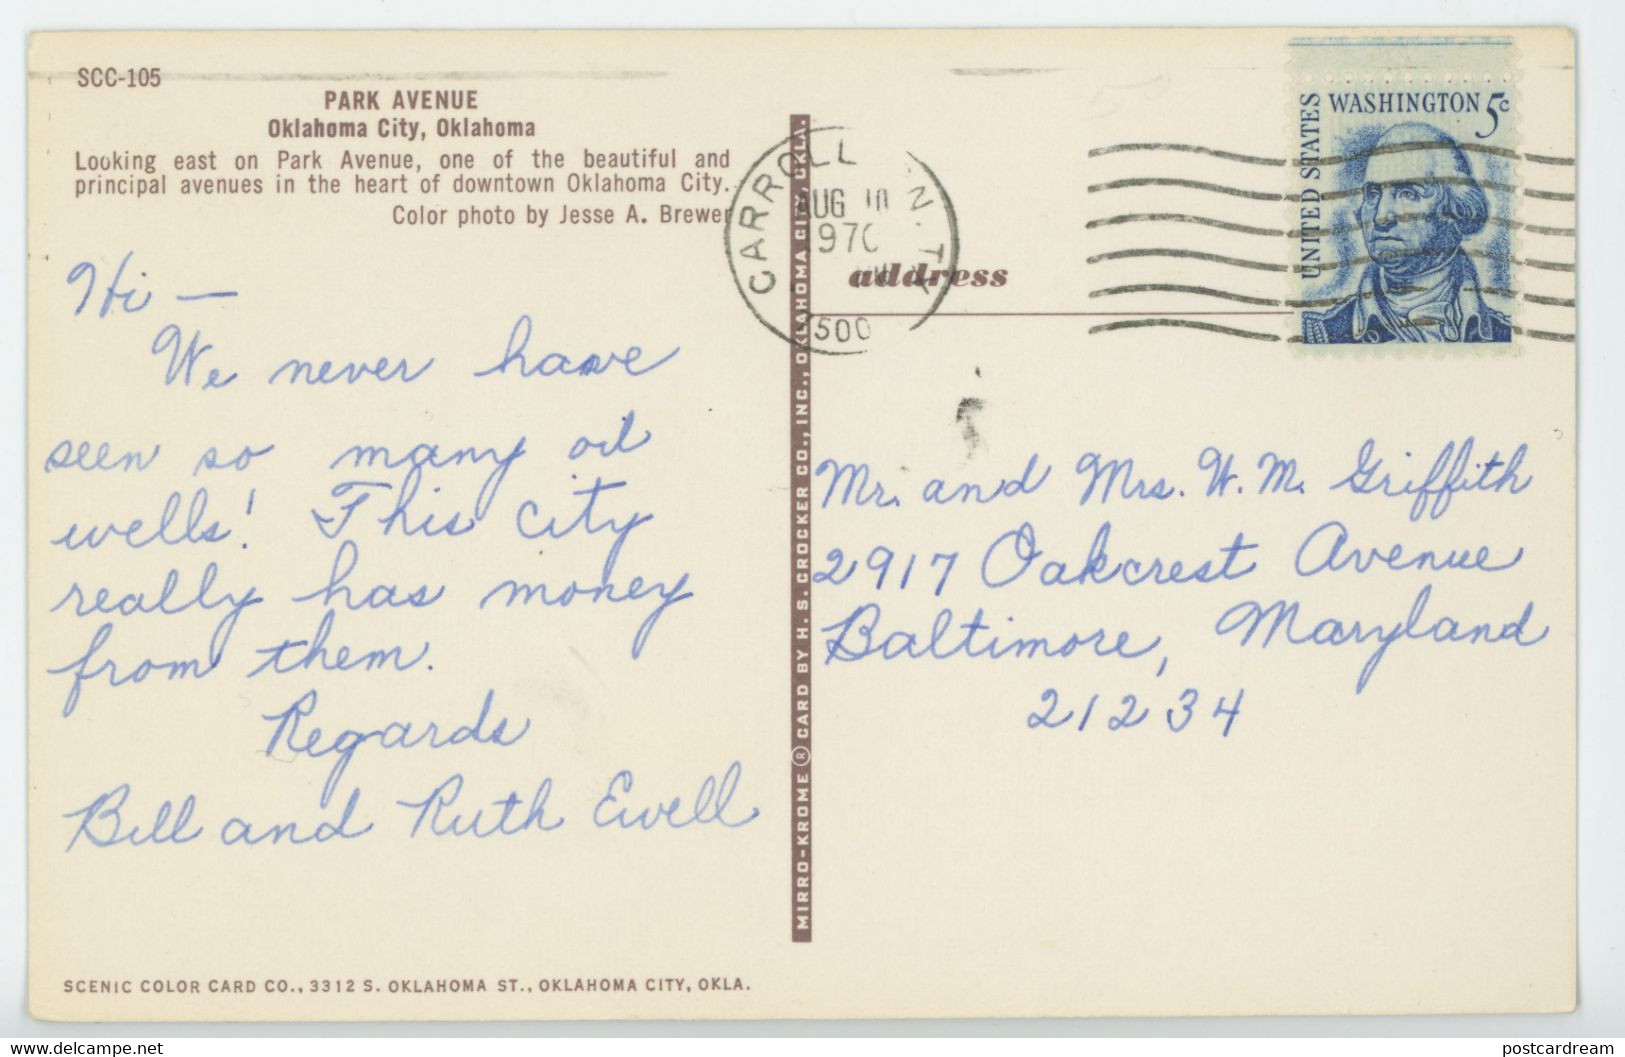 SCC-105
PARK AVENUE
Oklahoma City, Oklahoma
Looking east on Park Avenue, one of the beautiful and
principal avenues in the heart of downtown Oklahoma City.
Color photo by Jesse A. Brewer
Hi —
We never have
seen so many oil
wells! This city
really has money
from them.
Regards
Bill and Ruth Ewell
SCENIC COLOR CARD CO., 3312 S. OKLAHOMA ST., OKLAHOMA CITY, OKLA.
MIRRO-KROME® CARD BY H. S. CROCKER CO., INC., OKLAHOMA CITY, OKLA.
CARROLL N.Y.
AUG 10
1970
500
address
UNITED STATES
WASHINGTON 5c
Mr. and Mrs. W. M. Griffith
2917 Oakcrest Avenue
Baltimore, Maryland
21234
delcampe.net
postcardream